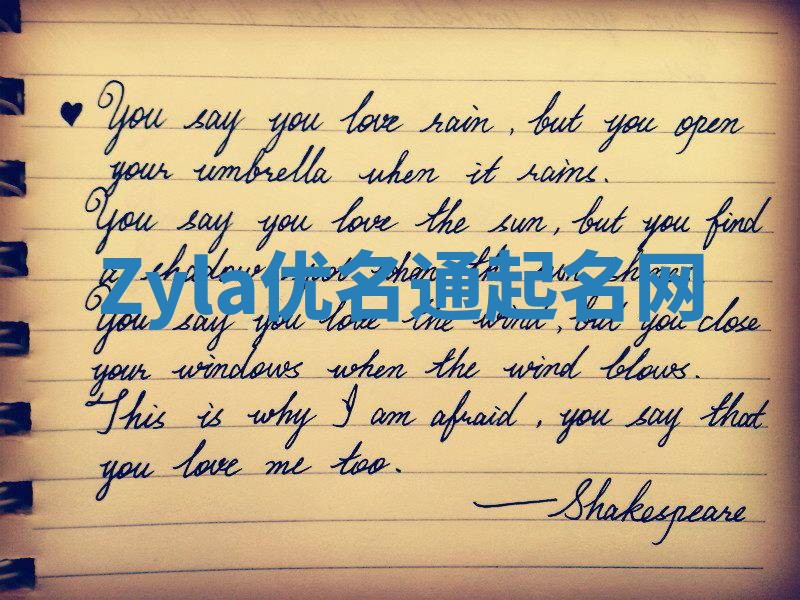 You say you love rain, but you open
your umbrella when it rains.
You say you love the sun, but you find
a shadow spot when the sun shines.
Zyla优名通起名网
You say you love the wind, but you close
your windows when the wind blows.
This is why I am afraid, you say that
you love me too.
—Shakespeare